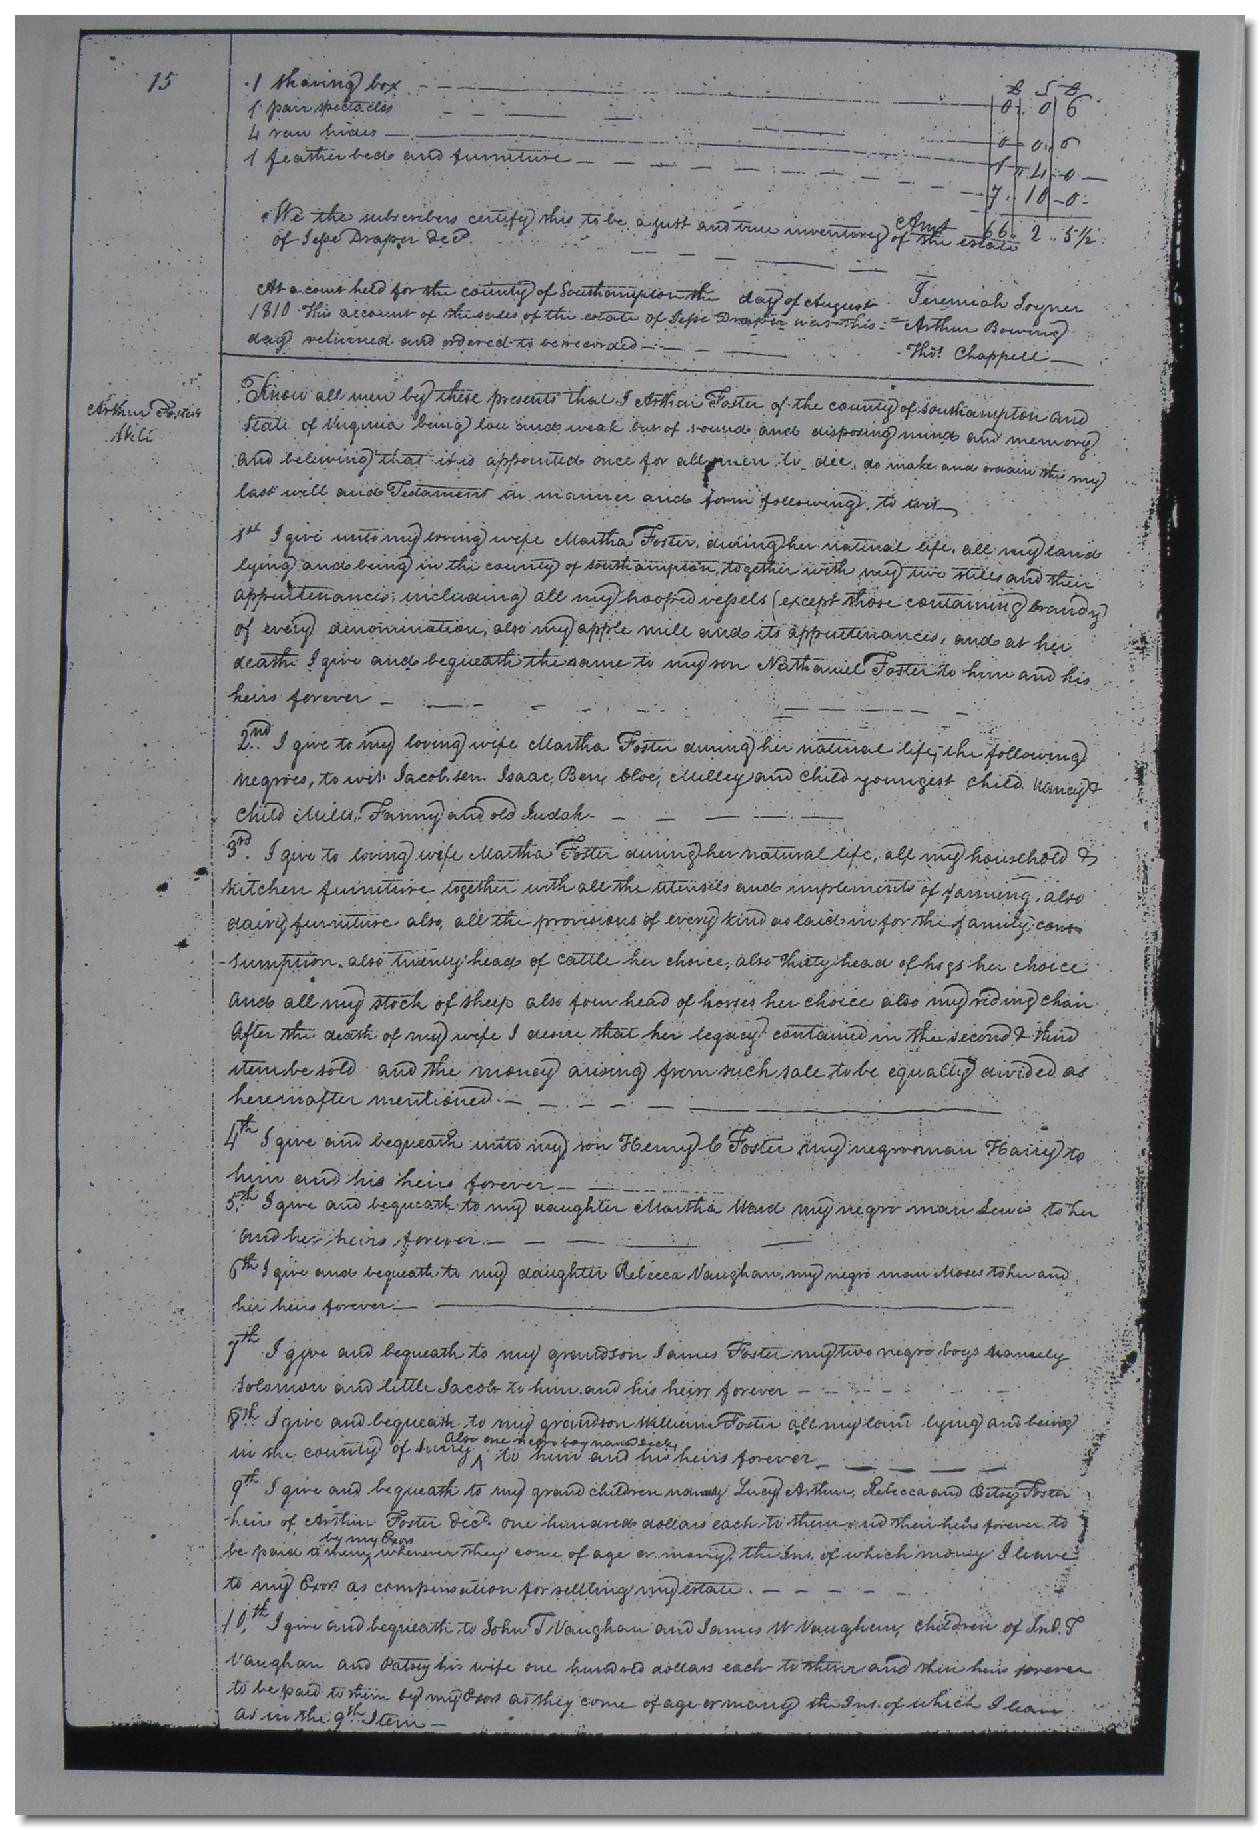 15
1 shaving box
£ S D
0 0 6
1 pair spectacles
4 raw hides
0 0 6
1 feather bed and furniture
1 4 0
7 10 0
We the subscribers certify this to be a just and true inventory of the estate
Amt 66 2 5½
of Jesse Draper Decd
At a court held for the county of Southampton the day of August
Jeremiah Joyner
1810 This account of the sales of the estate of Jesse Draper was this
Arthur Bowing
day returned and ordered to be recorded
Thos Chappell
Arthur Foster's
Will
Know all men by these presents that I Arthur Foster of the county of Southampton and
State of Virginia being low and weak but of sound and disposing mind and memory
and believing that it is appointed once for all men to die, do make and ordain this my
last will and Testament in manner and form following, to wit
1st I give unto my loving wife Martha Foster, during her natural life, all my land
lying and being in the county of Southampton, together with my two stills and their
appurtenances; including all my hooped vessels (except those containing brandy
of every denomination, also my apple mill and its appurtenances, and at her
death I give and bequeath the same to my son Nathaniel Foster to him and his
heirs forever
2nd I give to my loving wife Martha Foster during her natural life, the following
negroes, to wit. Jacob sen. Isaac, Ben, Cloe, Milley and child youngest child. Nancy &
child Mills, Fanny and old Judah
3rd. I give to loving wife Martha Foster during her natural life, all my household &
kitchen furniture together with all the utensils and implements of farming, also
dairy furniture also, all the provisions of every kind as laid in for the family con
-sumption, also twenty head of cattle her choice, also thirty head of hogs her choice
and all my stock of sheep also four head of horses her choice also my riding chair
After the death of my wife I desire that her legacy contained in the second & third
item be sold and the money arising from such sale to be equally divided as
hereinafter mentioned
4th I give and bequeath unto my son Henry C Foster my negro man Harry to
him and his heirs forever
5th I give and bequeath to my daughter Martha Ward my negro man Lewis to her
and her heirs forever
6th I give and bequeath to my daughter Rebecca Vaughan, my negro man Moses to her and
her heirs forever
7th I give and bequeath to my grandson James Foster my two negro boys namely
Solomon and little Jacob to him and his heirs forever
8th I give and bequeath to my grandson William Foster all my land lying and being
also one negro boy named Dick
in the county of Surry ^ to him and his heirs forever
9th I give and bequeath to my grand children namely Lucy, Arthur, Rebecca and Betsey Foster
heirs of Arthur Foster Decd. one hundred dollars each to them and their heirs forever to
by my Exors
be paid to them, whenever they come of age or marry, the Ins. of which money I leave
to my Exors as compensation for settling my estate.
10th I give and bequeath to John T Vaughan and James W Vaughan, children of Jno. T
Vaughan and Patsey his wife one hundred dollars each to them and their heirs forever
to be paid to them by my Exors as they come of age or marry the Ins. of which I leave
as in the 9th Item